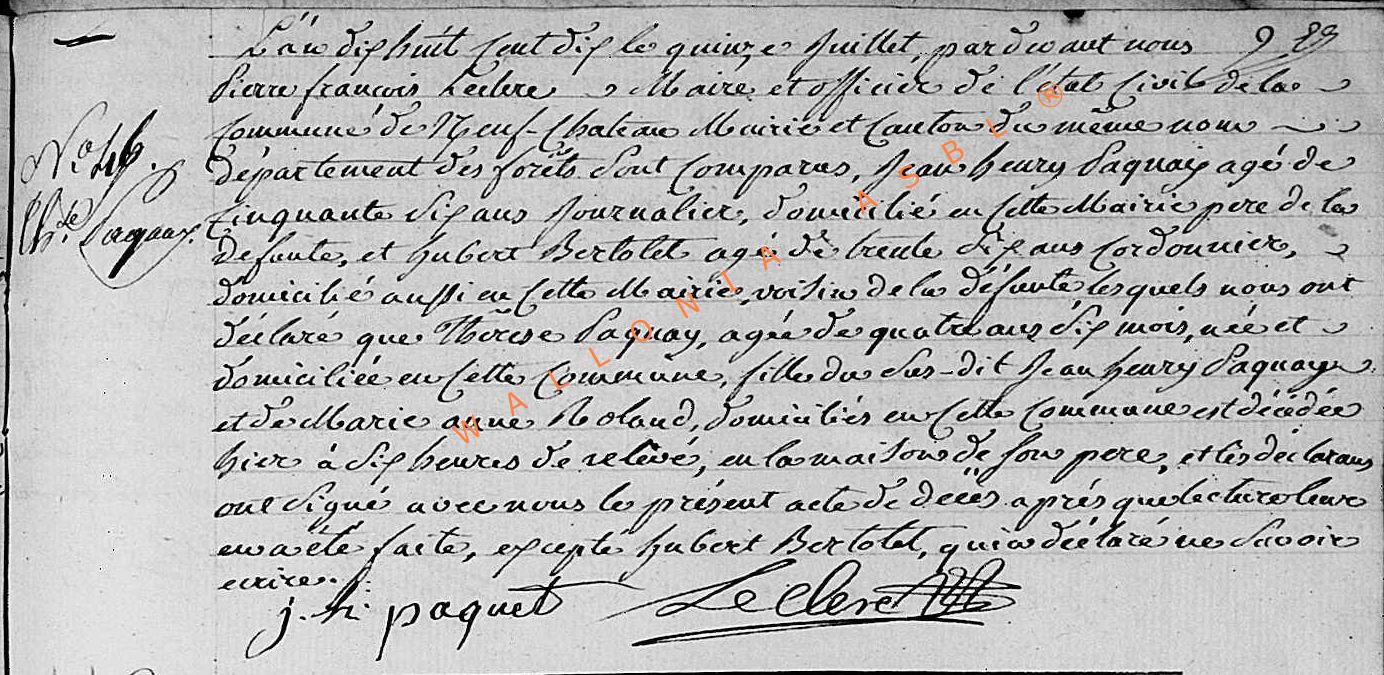 L'an dix huit cent dix le quinze Juillet, pardevant nous
Pierre françois Leclerc Maire et officier de l'état Civil de la
N.° 46.
Commune de Neuf-Chateau Mairie et Canton du même nom
département des forêts sont comparus, Jean henry Paquay agé de
Th.se Paquay.
Cinquante six ans Journalier, domicilié en Cette Mairie pere de la
defunte, et hubert Bertolet agé de trente six ans Cordonnier,
domicilié aussi en Cette Mairie, voisin de la défunte lesquels nous ont
déclaré que Thérese Paquay, agée de quatre ans six mois, née et
domiciliée en Cette Commune, fille du Sus-dit Jean henry Paquay
et de Marie anne Roland, domiciliés en Cette Commune est décédée
hier à six heures de relévé, en la maison de son pere, et les déclarans
ont signé avec nous le présent acte de décès après que lecture leur
en a été faite, excepté hubert Bertolet, qui a déclaré ne Savoir
ecrire.
j. h. paquet Leclerc
WALLONIA ASBL ®